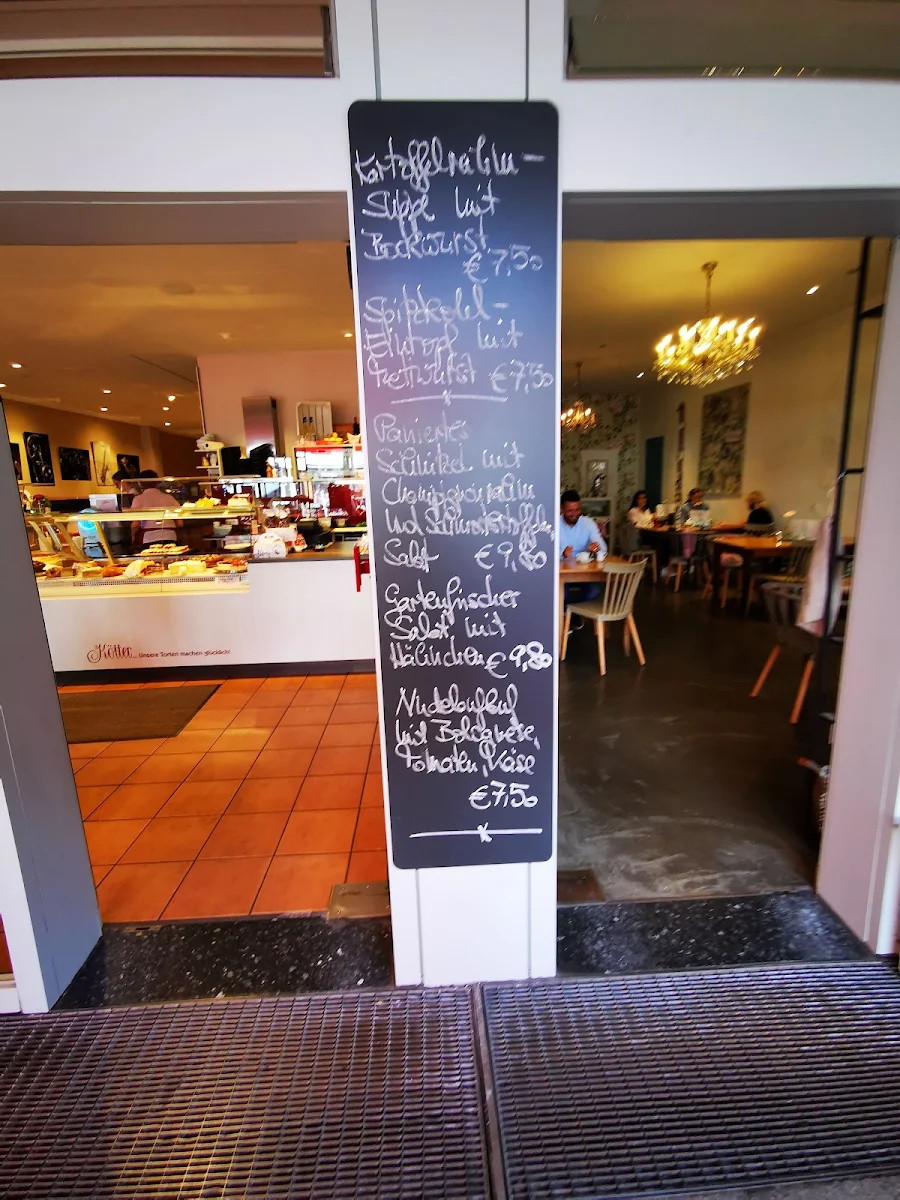 Kartoffelrahm-
Suppe mit
Bockwurst
€ 7,50
Spitzkohl-
Eintopf mit
Mettwurst €7,50
Paniertes
Schnitzel mit
Champignonrahm
und
Salat € 9,80
Gartenfrischer
Salat mit
Hähnchen € 9,80
Nudelauflauf
mit Bolognese,
Tomaten, Käse
€7,50
Kötter... Unsere Torten machen glücklich!